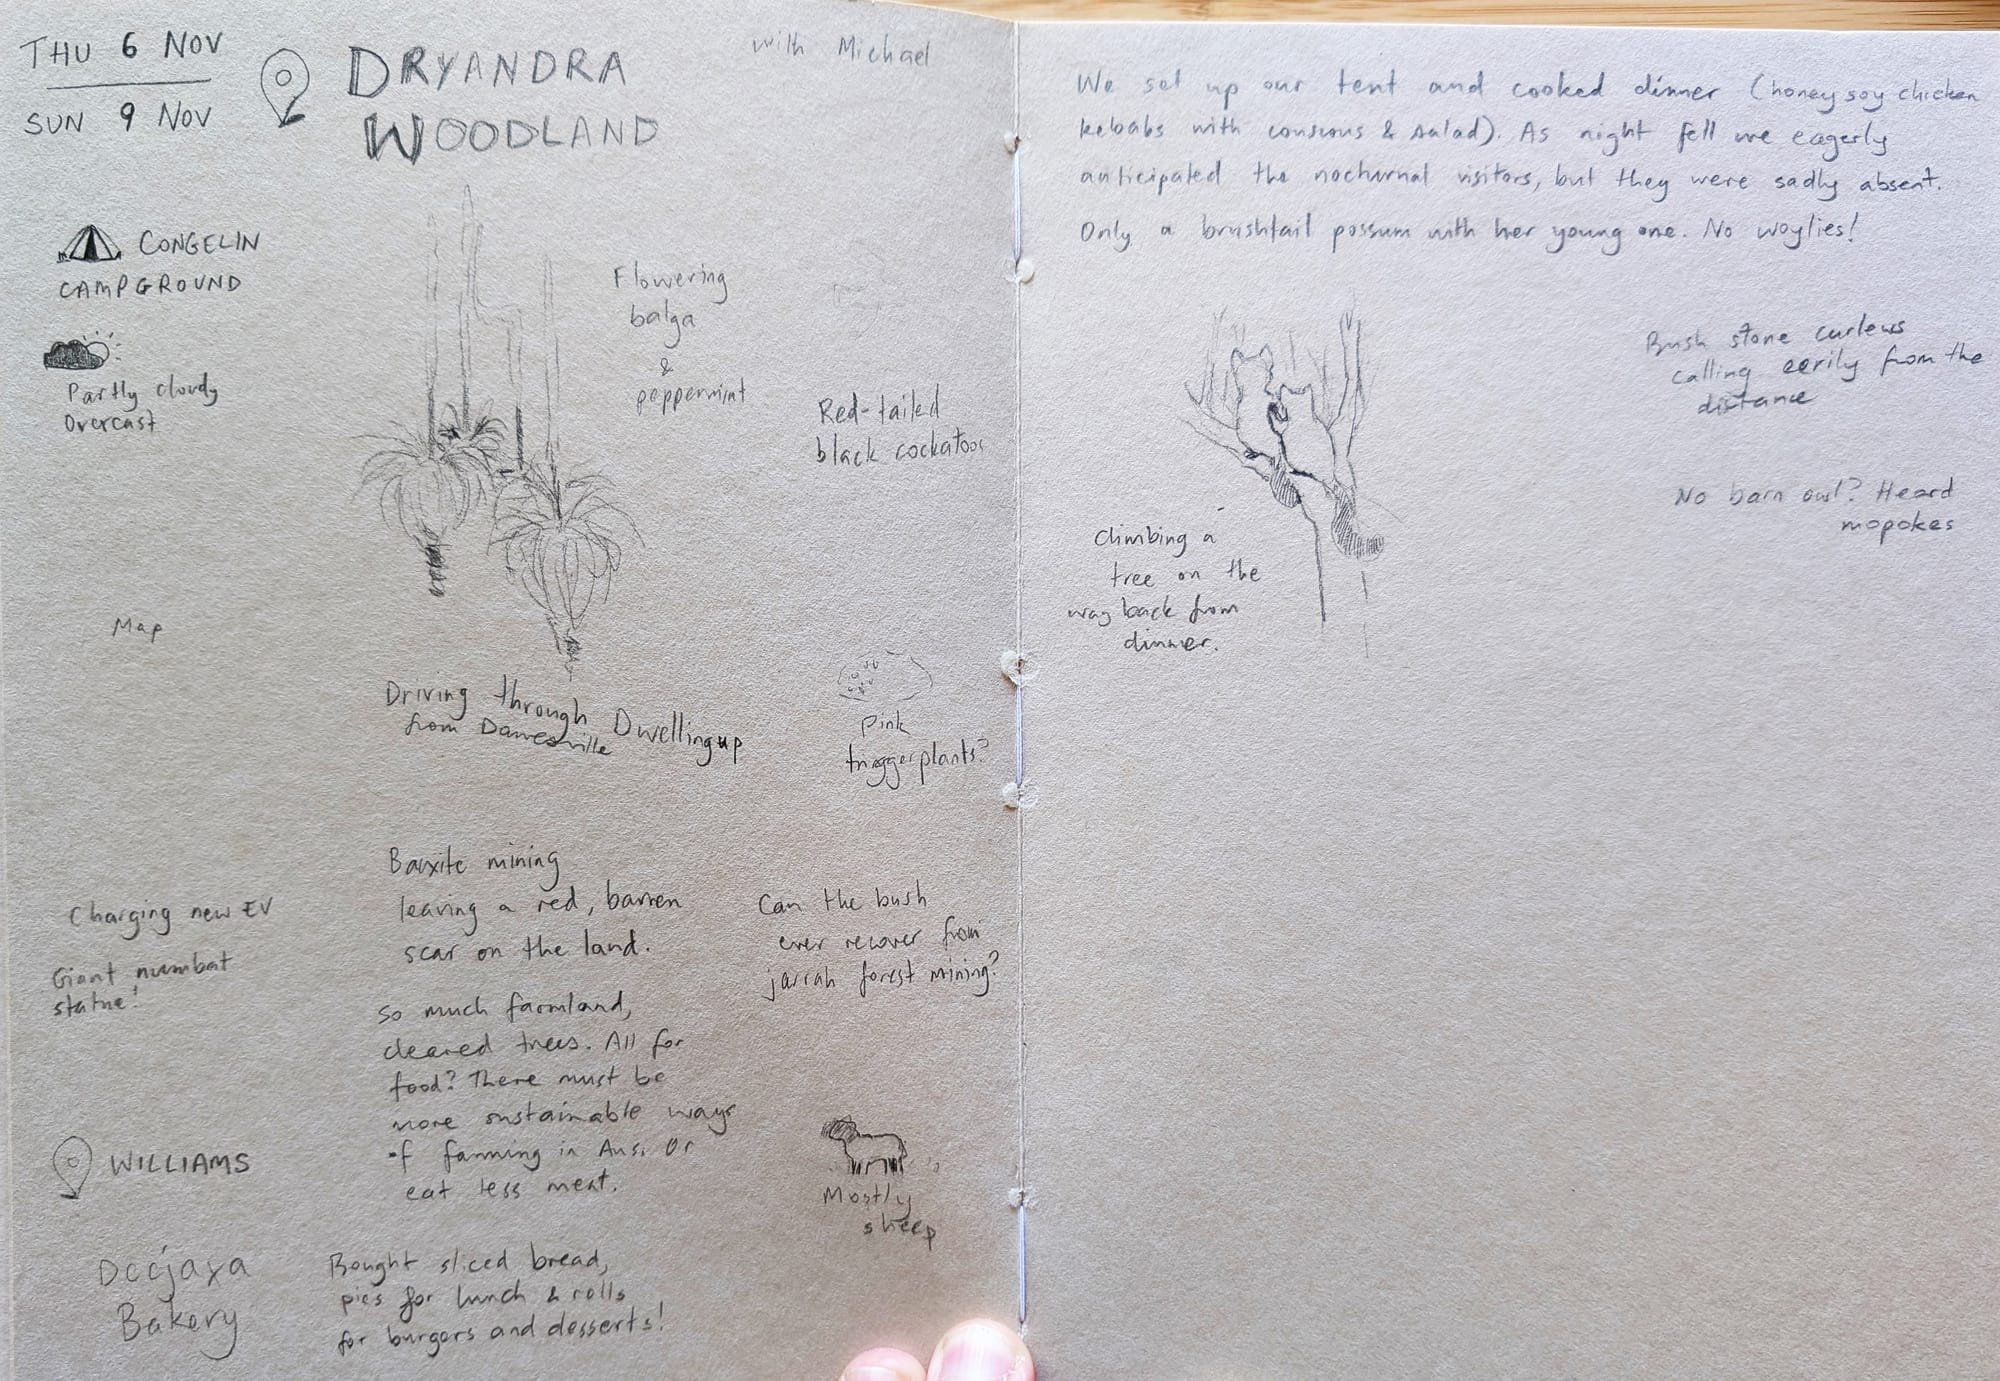 THU 6 NOV
SUN 9 NOV
DRYANDRA
WOODLAND
with Michael
CONGELIN
CAMPGROUND
Partly cloudy
Overcast
Flowering
balga
&
peppermint
Red-tailed
black cockatoos
Map
Driving through Dwellingup
from Dawesville
Pink
triggerplants?
Bauxite mining
leaving a red, barren
scar on the land.
Can the bush
ever recover from
jarrah forest mining?
Charging new EV
Giant numbat
statue!
So much farmland,
cleared trees. All for
food? There must be
more sustainable ways
of farming in Aus. Or
eat less meat.
Mostly
sheep
WILLIAMS
Deejaya
Bakery
Bought sliced bread,
pies for lunch & rolls
for burgers and desserts!
We set up our tent and cooked dinner (honey soy chicken
kebabs with couscous & salad). As night fell we eagerly
anticipated the nocturnal visitors, but they were sadly absent.
Only a brushtail possum with her young one. No woylies!
Bush stone curlews
calling eerily from the
distance
No barn owl? Heard
mopokes
Climbing a
tree on the
way back from
dinner.